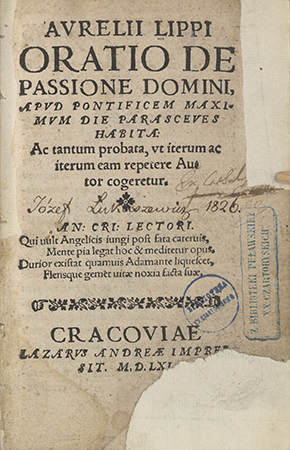 AVRELII LIPPI
ORATIO DE
PASSIONE DOMINI,
APVD PONTIFICEM MAXI-
MVM DIE PARASCEVES
HABITA:
Ac tantum probata, vt iterum ac
iterum eam repetere Au
tor cogeretur.
Józef Lukaszewicz 1826.
AN: CRI: LECTORI.
Qui uult Angelicis iungi post fata cateruis,
Mente pia legat hoc & meditetur opus,
Durior existat quamuis Adamante liquescet,
Flensque gemet uitæ noxia facta suæ.
Z BIBLIOTEKI PUŁAWSKIEJ
XX. CZARTORYSKICH.
CRACOVIAE
LAZARVS ANDREÆ IMPRES
SIT. M.D.LXI